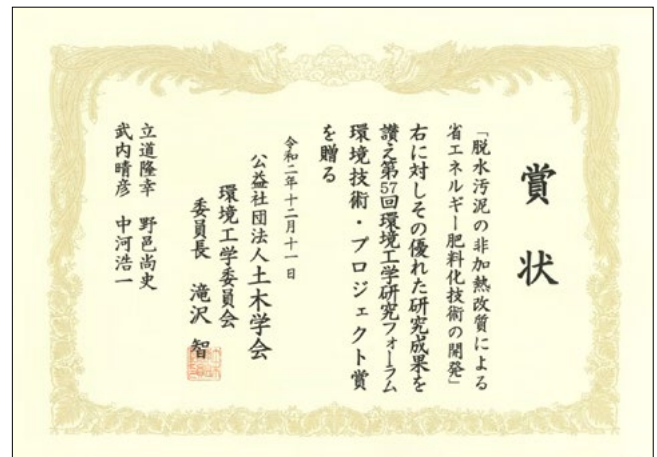 賞状
「脱水汚泥の非加熱改質による
省エネルギー肥料化技術の開発」
右に対しその優れた研究成果を
讃え第57回環境工学研究フォーラム
環境技術・プロジェクト賞
を贈る
令和二年十二月十一日
公益社団法人土木学会
環境工学委員会
委員長 滝沢 智
立道隆幸 野邑尚史
武内晴彦 中河浩一